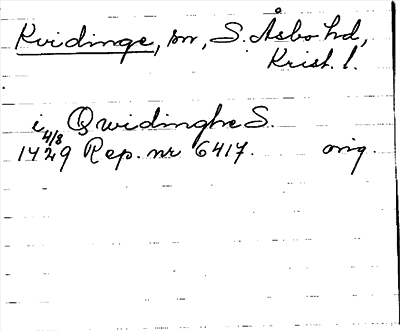 Kvidinge, sn, S. Åsbo hd,
Krist. l.
i Qwidinghe S.
4/8
1429 Rep. nr 6417. orig.